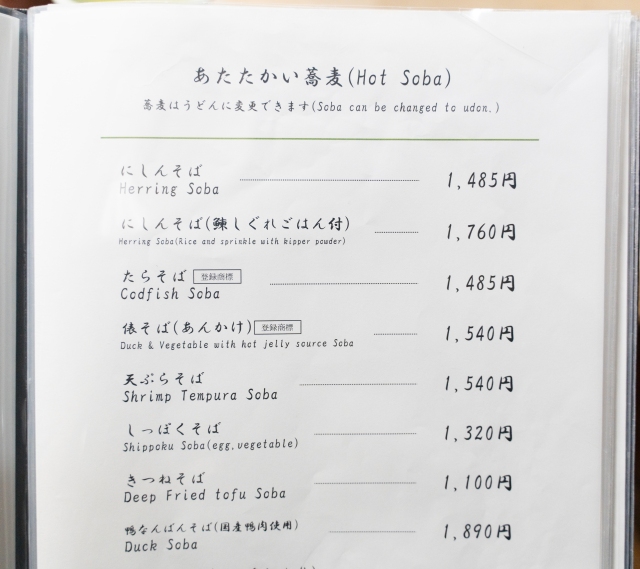 あたたかい蕎麦(Hot Soba)
蕎麦はうどんに変更できます(Soba can be changed to udon.)
にしんそば 1,485円
Herring Soba
にしんそば(鰊しぐれごはん付) 1,760円
Herring Soba(Rice and sprinkle with kipper powder)
たらそば 登録商標 1,485円
Codfish Soba
俵そば(あんかけ) 登録商標 1,540円
Duck & Vegetable with hot jelly source Soba
天ぷらそば 1,540円
Shrimp Tempura Soba
しっぽくそば 1,320円
Shippoku Soba(egg,vegetable)
きつねそば 1,100円
Deep Fried tofu Soba
鴨なんばんそば(国産鴨肉使用) 1,890円
Duck Soba